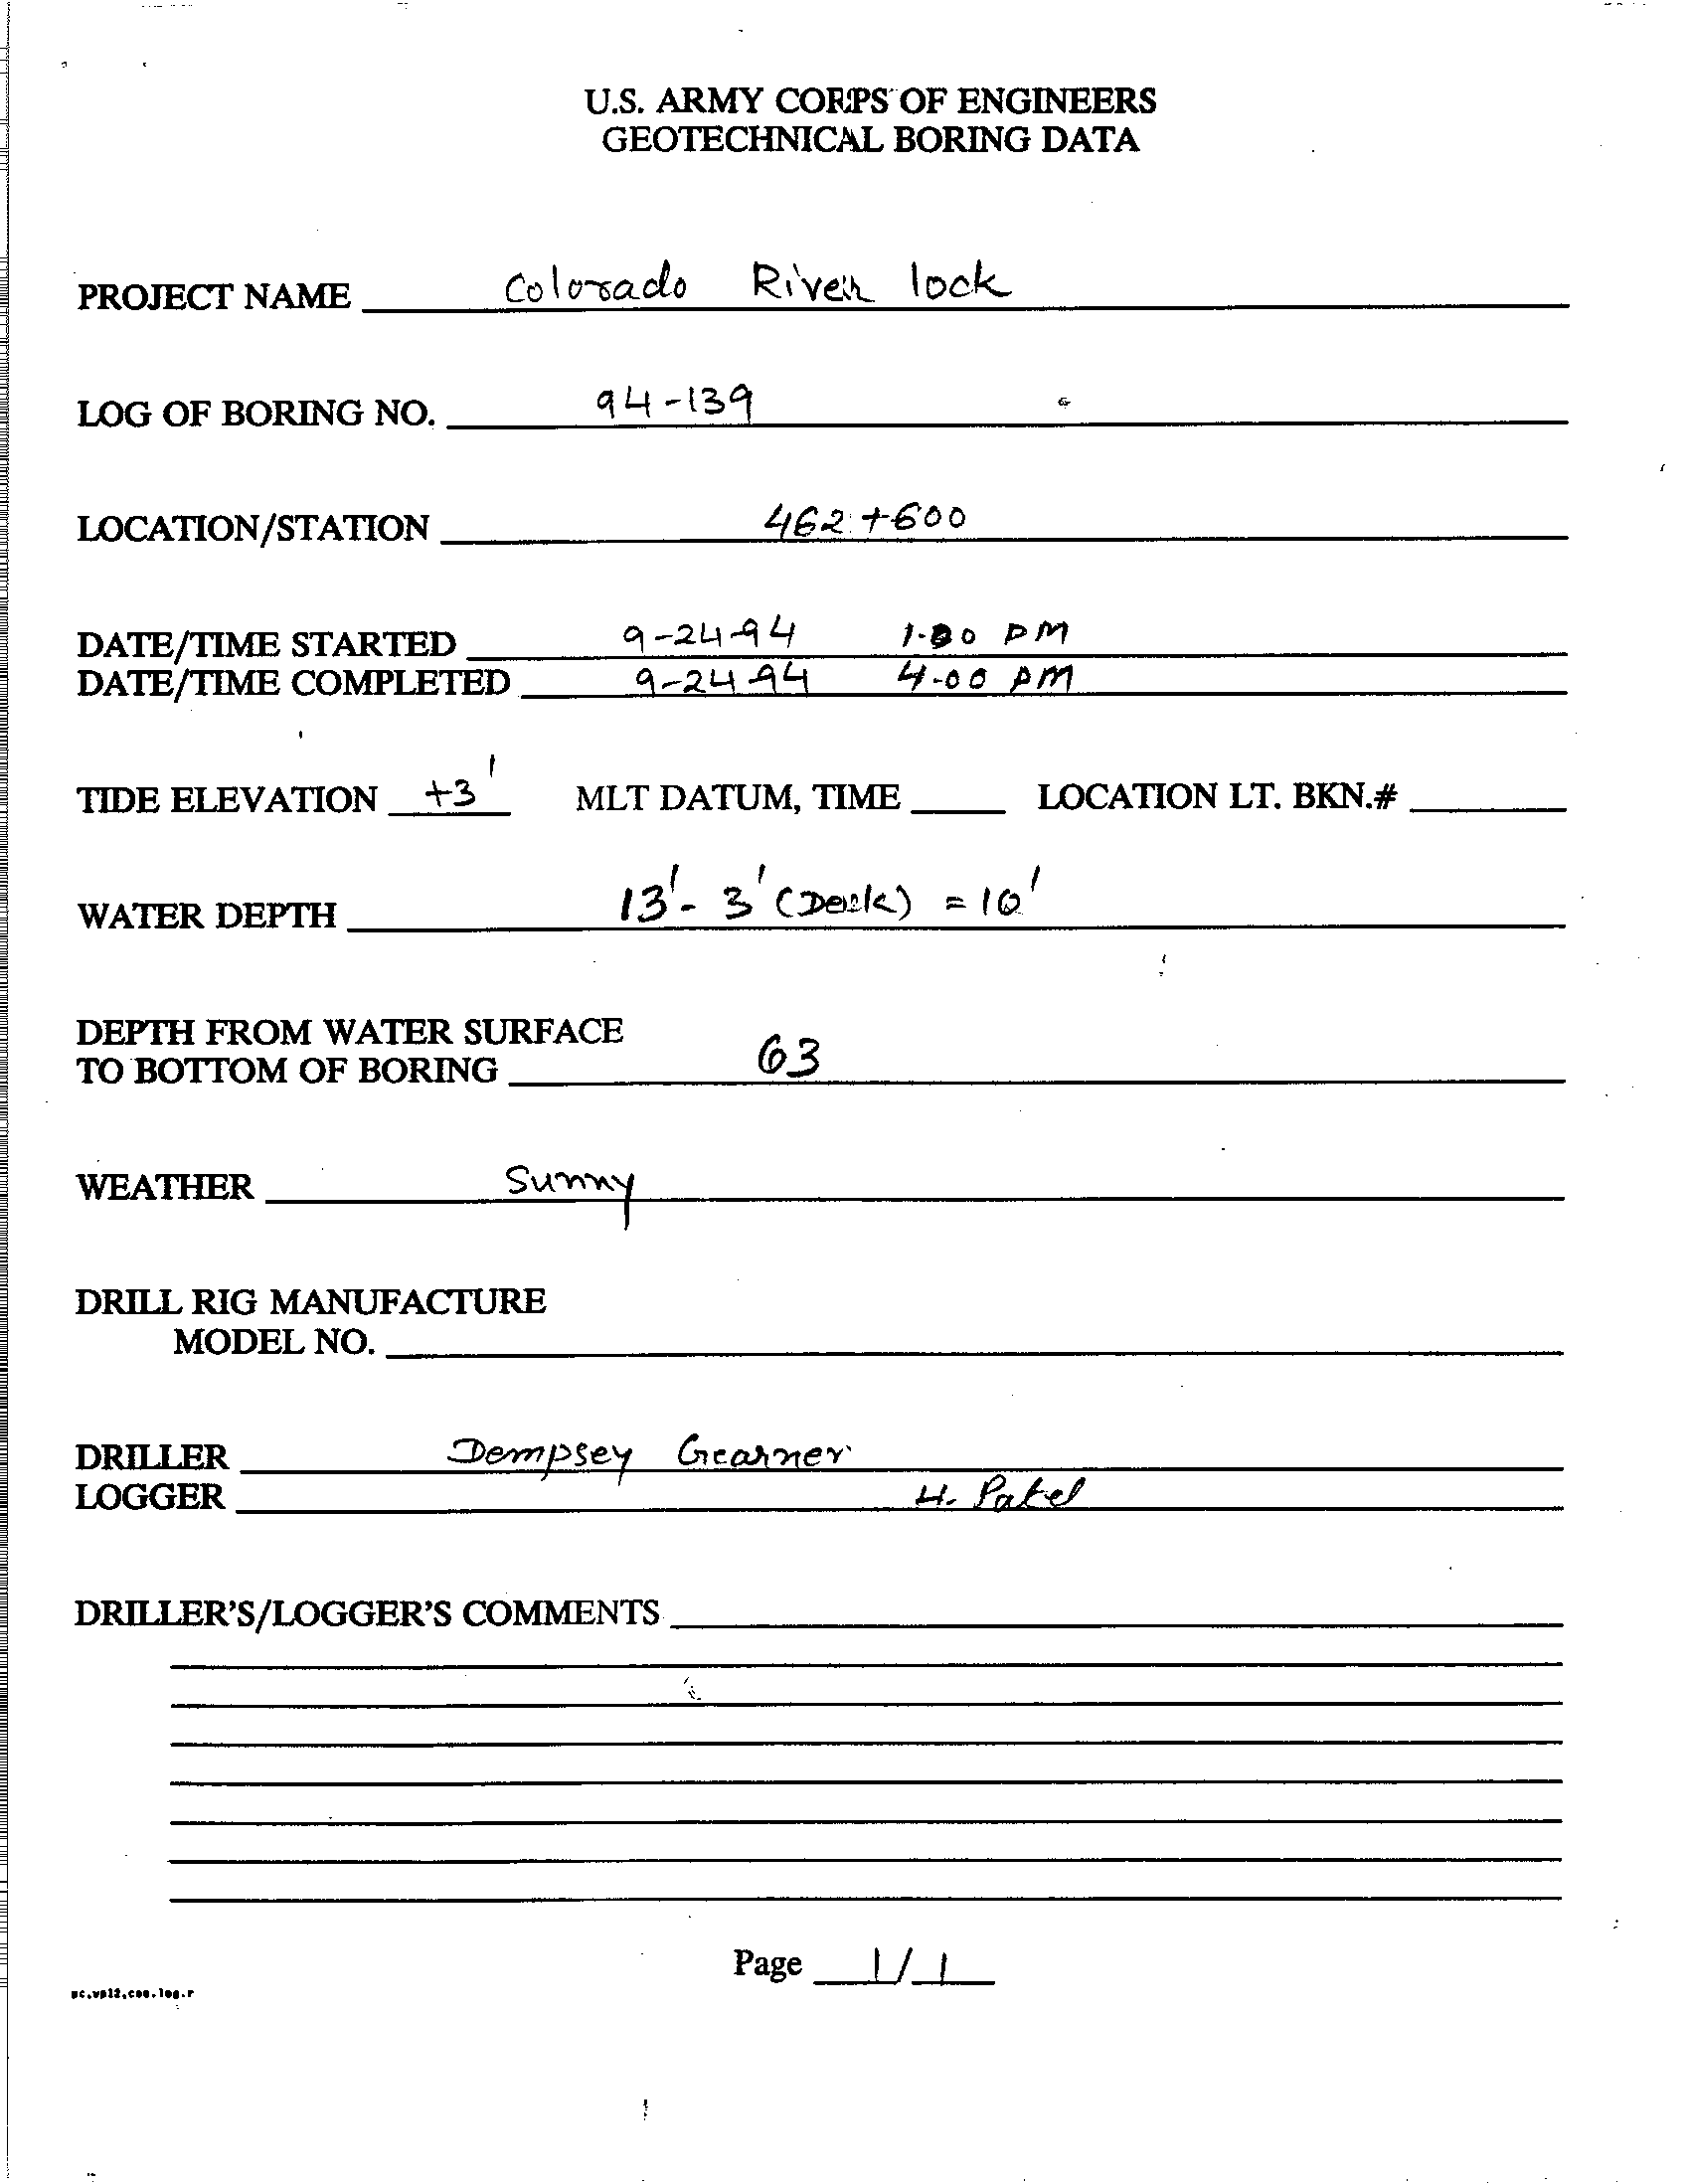 U.S. ARMY CORPS OF ENGINEERS
GEOTECHNICAL BORING DATA
PROJECT NAME Colorado River lock
LOG OF BORING NO. 94-139
LOCATION/STATION 462+600
DATE/TIME STARTED 9-24-94 PM
DATE/TIME COMPLETED 9-24-94 4-00 PM
TIDE ELEVATION +3' MLT DATUM, TIME LOCATION LT. BKN.#
WATER DEPTH 13'- 3' (Deck) = 10'
DEPTH FROM WATER SURFACE
TO BOTTOM OF BORING 63
WEATHER Sunny
DRILL RIG MANUFACTURE
MODEL NO.
DRILLER Dempsey Gearner
LOGGER H. Patel
DRILLER'S/LOGGER'S COMMENTS
Page 1/1